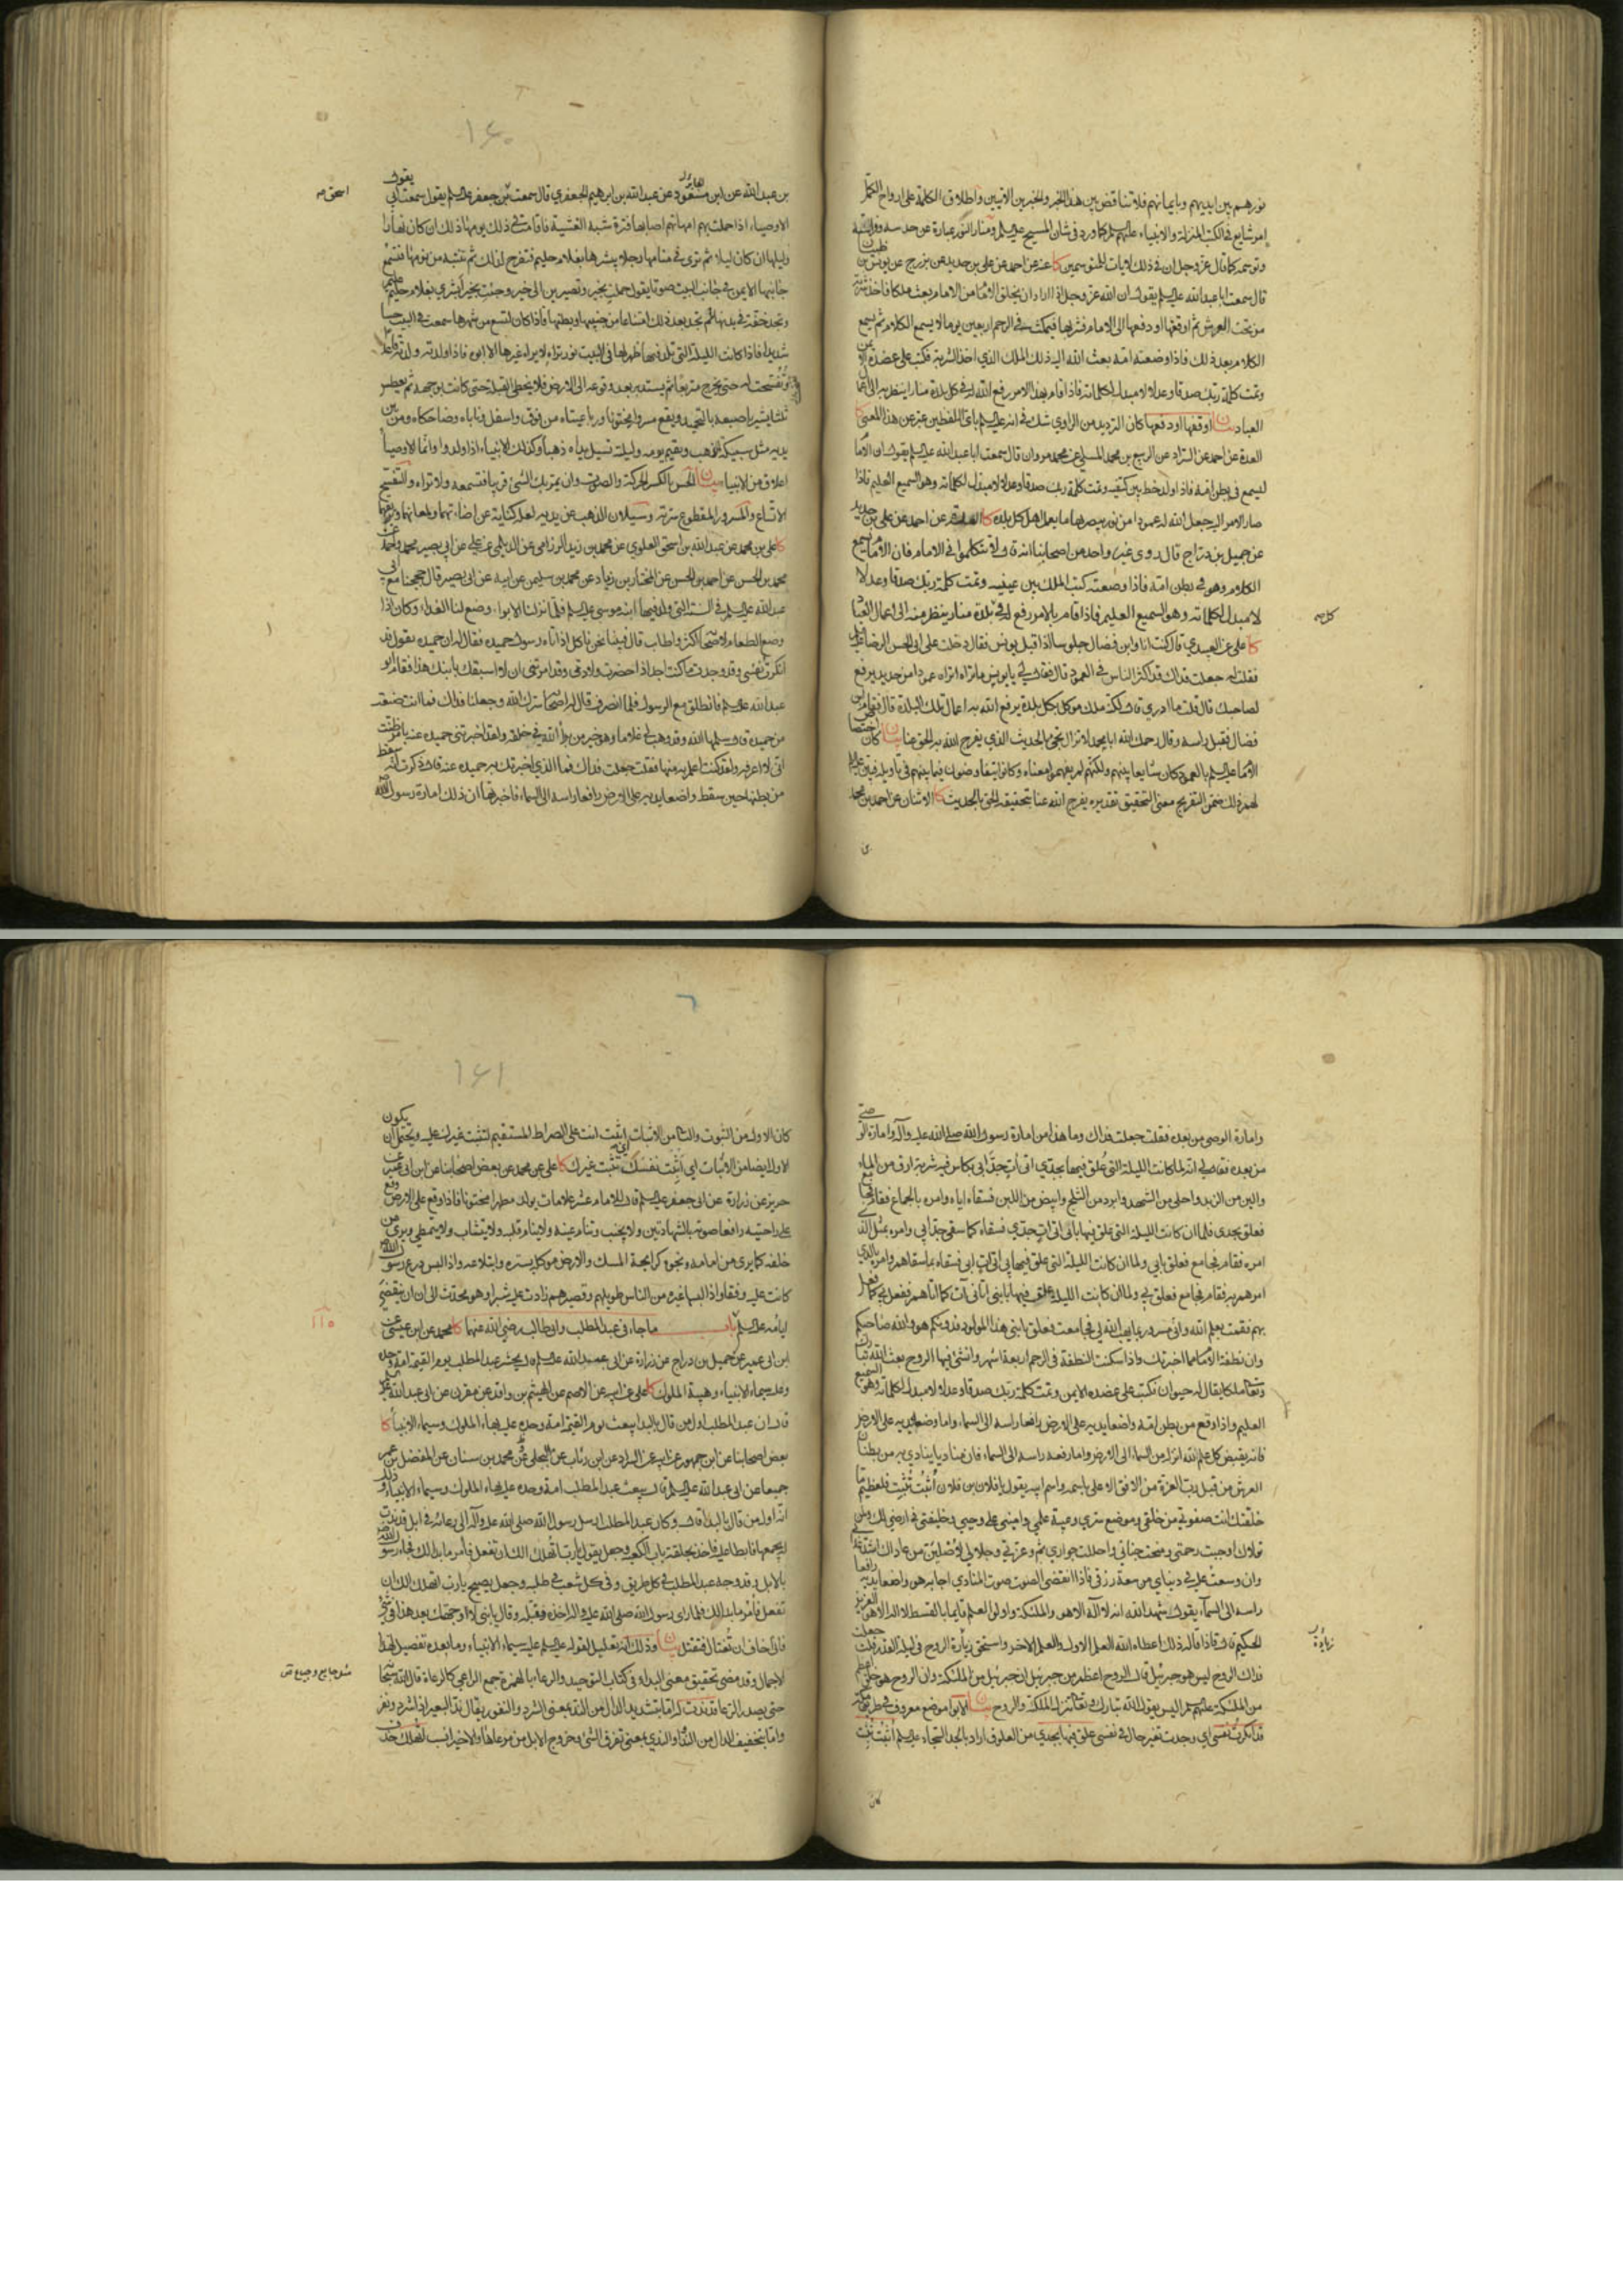 نورهم بين ايديهم وبايمانهم فلا تناقض بين هذا الخبر والخبرين الاتيين واطلاق الكلمة على ارواح الكمل
امر شايع في الكتب المنزلة والانبياء عليهم السلم كما ورد في شان المسيح عليه السلم ومنار النور عبارة عن حدسه
وتوسمه كما قال عز وجل ان في ذلك لايات للمتوسمين كا عنه عن احمد عن علي بن حديد عن بزرج عن يونس بن ظبيان
قال سمعت ابا عبدالله عليه السلم يقول ان الله عز وجل اذا اراد ان يخلق الامام من الامام بعث ملكا فاخذ شربة
من تحت العرش ثم اوقعها او دفعها الى الامام فشربها فيمكث في الرحم اربعين يوما لا يسمع الكلام ثم يسمع
الكلام بعد ذلك فاذا وضعته امه بعث الله اليه ذلك الملك الذي اخذ الشربة فكتب على عضده الايمن
وتمت كلمة ربك صدقا وعدلا لا مبدل لكلماته فاذا قام بهذا الامر رفع الله له في كل بلدة منارا ينظر به الى اعمال
العباد بيان اوقعها او دفعها كان الترديد من الراوي شك في انه عليه السلم باي اللفظين عبر عن هذا المعنى كا
العدة عن احمد عن السراد عن الربيع بن محمد المسلي عن محمد مروان قال سمعت ابا عبدالله عليه السلم يقول ان الامام
ليسمع في بطن امه فاذا ولد خط بين كتفيه وتمت كلمة ربك صدقا وعدلا لا مبدل لكلماته وهو السميع العليم فاذا
صار الامر اليه جعل الله له عمودا من نور يبصر به ما يعمل اهل كل بلدة كا العدة عن احمد عن علي بن حديد
عن جميل بن دراج قال روى غير واحد من اصحابنا انه قال لا تتكلموا في الامام فان الامام يسمع
الكلام وهو في بطن امه فاذا وضعته كتب الملك بين عينيه وتمت كلمة ربك صدقا وعدلا
لا مبدل لكلماته وهو السميع العليم فاذا قام بالامر رفع له في بلدة منار ينظر منه الى اعمال العباد
كا علي عن العبيدي قال كنت انا وابن فضال جلوسا اذا قبل يونس فقال دخلت على ابي الحسن الرضا عليه السلم
فقلت له جعلت فداك قد اكثر الناس في العمود قال فقال لي يا يونس ما تراه اتراه عمودا من حديد يرفع
لصاحبك قال قلت ما ادري قال لكنه ملك موكل بكل بلدة يرفع الله به اعمال تلك البلدة قال فقام ابن
فضال فقبل راسه وقال رحمك الله ابا محمد لا تزال تجئ بالحديث الذي يفرج الله به الحق عنا بيان كان اختصاص
الامام عليه السلم بالعمود كان شايعا بينهم ولكنهم لم يفهموا معناه وكانوا يتفاوضون فيما بينهم في تاويله
لهم ذلك ضمن التفريج معنى التحقيق تقديره يفرج الله عنا بتحقيقه الحق بالحديث كا الاثنان عن احمد بن محمد
كل صح
بن عبدالله عن ابن مسعود عن عبدالله بن ابرهيم الجعفري قال سمعت بن جعفر عليه السلم يقول سمعت ابي يقول
اسحق صح
الاوصياء اذا حملت بهم امهاتهم اصابها فترة شبه الغشية فاقامت في ذلك يومها ذلك ان كان نهارا
وليلها ان كان ليلا ثم ترى في منامها رجلا يبشرها بغلام حليم فتفرح لذلك ثم تنتبه من نومها فتسمع
جانبها الايمن في جانب البيت صوتا يقول حملت بخير وتصيرين الى خير وجئت بخير ابشري بغلام حليم عليم
وتجد خفة في بدنها ثم تجد بعد ذلك امتناعا من جنبيها وبطنها فاذا كان لتسع من شهرها سمعت في البيت حسا
شديدا فاذا كانت الليلة التي تلد فيها ظهر لها في البيت نور تراه لا يراه غيرها الا ابوه فاذا ولدته ولدته قاعدا
وتفتحت له حتى يخرج متربعا ثم يستدير بعد وقوعه الى الارض فلا يخطئ القبلة حتى كانت بوجهه ثم يعطس
ثلثا يشير باصبعه بالتحميد ويقع مسرورا مختونا ورباعيتاه من فوق واسفل وناباه وضاحكاه ومن بين
يديه مثل سبيكة الذهب ويقيم يومه وليلته تسيل يداه ذهبا وكذلك الانبياء اذا ولدوا وانما الاوصياء
اعلاق من الانبياء بيان الحس بالكسر الحركة والصوت وان يمر بك الشئ قريبا فتسمعه ولا تراه والتفتح
الاتساع والمسرور المقطوع سرته وسيلان الذهب عن يديه لعله كناية عن اضاءتهما ولمعانهما
كا علي بن محمد عن عبدالله بن اسحق العلوي عن محمد بن زيد الرزامي عن الديلمي عن علي عن ابي بصير محمد واحمد
محمد بن الحسن عن احمد بن الحسن عن المختار بن زياد عن محمد بن سليمن عن ابيه عن ابي بصير قال حججنا مع ابي
عبدالله عليه السلم في السنة التي ولد فيها ابنه موسى عليه السلم فلما نزلنا الابواء وضع لنا الغداء وكان اذا
وضع الطعام لاصحابه اكثر واطاب قال فبينا نحن ناكل اذ اتاه رسول حميده فقال له ان حميده يقول قد
انكرت نفسي وقد وجدت ما كنت اجد اذا حضرت ولادتي وقد امرتني ان لا اسبقك بابنك هذا فقام ابو
عبدالله عليه السلم فانطلق مع الرسول فلما انصرف قال له اصحابه سرك الله وجعلنا فداك فما انت صنعت
من حميده قال سلمها الله وقد وهب لي غلاما وهو خير من برأ الله في خلقه ولقد اخبرتني حميده عنه بامر ظنت
اني لا اعرفه ولقد كنت اعلم به منها فقلت جعلت فداك فما الذي اخبرتك به حميده عنه قال ذكرت انه سقط
من بطنها حين سقط واضعا يديه على الارض رافعا راسه الى السماء فاخبرتها ان ذلك امارة رسول الله
وامارة الوصي من بعده فقلت جعلت فداك وما هذا من امارة رسول الله صلى الله عليه واله وامارة الوصي
من بعده فقال لي انه لما كانت الليلة التي علق فيها بجدي اتى آت جد ابي بكاس فيه شربة ارق من الماء
والين من الزبد واحلى من الشهد وابرد من الثلج وابيض من اللبن فسقاه اياه وامره بالجماع فقام فجامع
فعلق بجدي فلما ان كانت الليلة التي علق فيها بابي اتى آت جدي فسقاه كما سقى جد ابي وامره بمثل الذي
امره فقام فجامع فعلق بابي ولما ان كانت الليلة التي علق فيها بي اتى آت ابي فسقاه بما سقاهم وامره بالذي
امرهم به فقام فجامع فعلق بي ولما ان كانت الليلة علق فيها بابني اتاني آت كما اتاهم ففعل بي كما فعل
بهم فقمت بعلم الله واني مسرور بما يهب الله لي فجامعت فعلق بابني هذا المولود فدونكم هو والله صاحبكم
وان نطفة الامام مما اخبرتك واذا سكنت النطفة في الرحم اربعة اشهر وانشئ فيها الروح بعث الله تبارك
وتعالى ملكا يقال له حيوان فكتب على عضده الايمن وتمت كلمة ربك صدقا وعدلا لا مبدل لكلماته وهو السميع
العليم واذا وقع من بطن امه واضعا يديه على الارض رافعا راسه الى السماء واما وضعه يديه على الارض
فانه يقبض كل علم لله انزله من السماء الى الارض واما رفعه راسه الى السماء فان مناديا ينادي به من بطنان
العرش من قبل رب العزة من الافق الاعلى باسمه واسم ابيه يقول يا فلان بن فلان اثبت تثبت فلعظيم ما
خلقتك انت صفوتي من خلقي وموضع سري وعيبة علمي واميني على وحيي وخليفتي في ارضي لك ولمن
تولاك اوجبت رحمتي ومنحت جناني واحللت جواري ثم وعزتي وجلالي لاصلين من عاداك اشد عذابي
وان وسعت عليه في دنياي من سعة رزقي فاذا انقضى الصوت صوت المنادي اجابه هو واضعا يديه رافعا
راسه الى السماء يقول شهد الله انه لا اله الا هو والملئكة واولوا العلم قايما بالقسط لا اله الا هو العزيز
الحكيم قال فاذا قال ذلك اعطاه الله العلم الاول والعلم الاخر واستحق زيارة الروح في ليلة القدر قلت جعلت
فداك الروح ليس هو جبرئيل قال الروح اعظم من جبرئيل ان جبرئيل من الملئكة وان الروح هو خلق اعظم
من الملئكة عليهم السلم اليس يقول الله تبارك وتعالى تنزل الملئكة والروح بيان الابواء موضع معروف في طريق مكة
قد انكرت نفسي اي وجدت تغير حال في نفسي علق فيها بجدي من العلوق اراد بالجد السجاد عليه السلم اثبت تثبت
كان
كان الاول من الثبوت والثاني من الاثبات اي اثبت انت على الصراط المستقيم لتثبت غيرك عليه ويحتمل ان يكون
الاول ايضا من الاثبات اي اثبت نفسك تثبت غيرك كا علي بن محمد عن بعض اصحابنا عن ابن ابي عمير عن
حريز عن زرارة عن ابي جعفر عليه السلم قال للامام عشر علامات يولد مطهرا مختونا فاذا وقع على الارض وقع
على راحتيه رافعا صوته بالشهادتين ولا يجنب وتنام عينه ولا ينام قلبه ولا يتثاب ولا يتمطى ويرى من
خلفه كما يرى من امامه ونجوه كرائحة المسك والارض موكلة بستره وابتلاعه واذا لبس درع رسول الله
كانت عليه وفقا واذا لبسها غيره من الناس طويلهم وقصيرهم زادت عليه شبرا وهو محدث الى ان تنقضي
ايامه عليه السلم باب ما جاء في عبد المطلب وابي طالب رضي الله عنهما كا محمد عن ابن عيسى عن
١١٥
ابن ابي عمير عن جميل بن دراج عن زرارة عن ابي عبدالله عليه السلم قال يحشر عبد المطلب يوم القيمة امة وحده
وعليه سيماء الانبياء وهيبة الملوك كا علي عن ابيه عن الاصم عن الهيثم بن واقد عن مقرن عن ابي عبدالله عليه السلم
قال ان عبد المطلب اول من قال بالبدا يبعث يوم القيمة امة وحده عليه بهاء الملوك وسيماء الانبياء كا
بعض اصحابنا عن ابن جمهور عن ابيه عن السراد عن ابن رئاب عن البجلي وعن محمد بن سنان عن المفضل بن عمر
جميعا عن ابي عبدالله عليه السلم قال يبعث عبد المطلب امة وحده عليه بهاء الملوك وسيماء الانبياء وذلك
انه اول من قال بالبدا قال وكان عبد المطلب ارسل رسول الله صلى الله عليه واله الى رعاته في ابل قد ندت
له يجمعها فابطا عليه فاخذ بحلقة باب الكعبه وجعل يقول يا رب اتهلك الك ان تفعل فامر ما بدا لك فجاء رسول الله
بالابل وقد وجه عبد المطلب في كل طريق وفي كل شعب في طلبه وجعل يصيح يا رب اتهلك الك ان
تفعل فامر ما بدا لك فلما راى رسول الله صلى الله عليه واله اخذه فقبله وقال يا بني لا اوجهتك بعد هذا في شئ
فاني اخاف ان تغتال فتقتل بيان وذلك انه تعليل لقوله عليه السلم عليه سيماء الانبياء وما بعده تفصيل لهذا
الاجمال وقد مضى تحقيق معنى البداء في كتاب التوحيد والرعا بالهمزة جمع الراعي كالرعاة قال الله سبحانه
حتى يصدر الرعا قد ندت له اما بتشديد الدال من الند بمعنى الشرد والنفور يقال ند البعير اذا شرد ونفر
واما بتخفيف الدال من الندو والندي بمعنى تفرق الشئ وخروج الابل من مرعاها والاخير انسب اتهلك حذف
١٦٠
١٦١